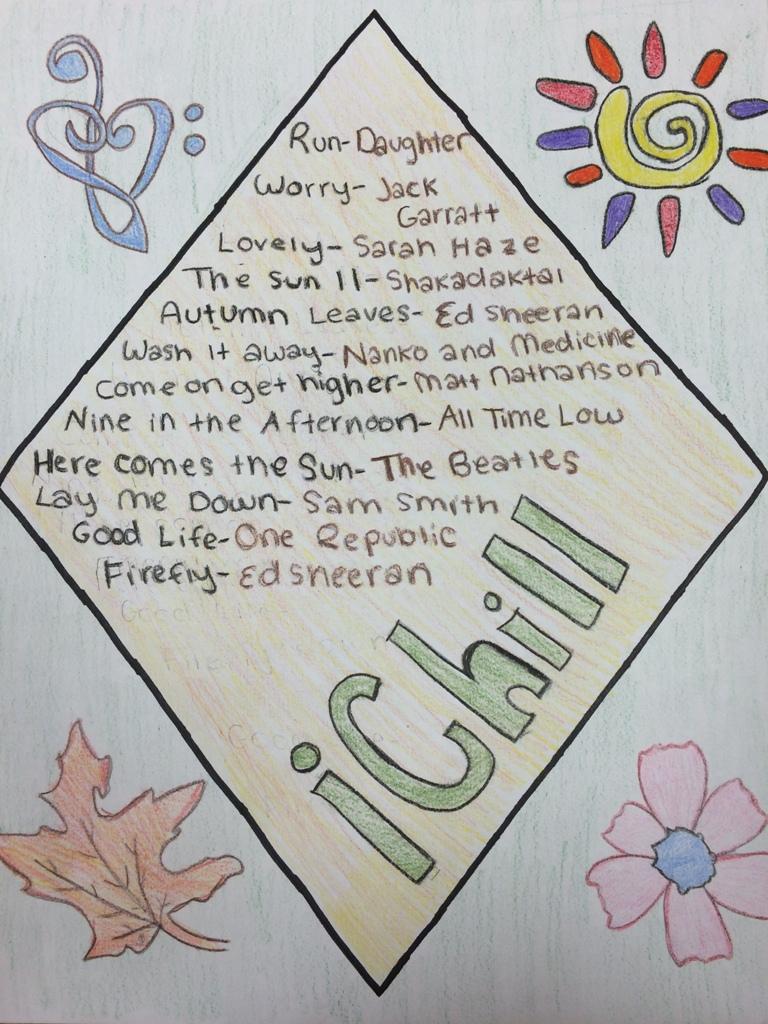 Run-Daughter
Worry-Jack
Garratt
Lovely-Sarah Haze
The Sun II-Shakadaktal
Autumn Leaves-Ed Sheeran
Wash It away-Nanko and Medicine
come on get higher-Matt Nathanson
Nine in the Afternoon-All Time Low
Here comes the Sun-The Beatles
Lay me Down-Sam Smith
Good Life-One Republic
Firefly-Ed Sheeran
iChill